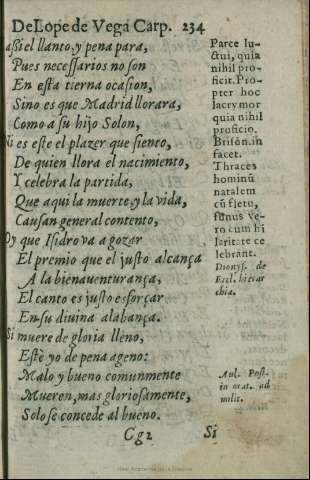 De Lope de Vega Carp. 234
aßi el llanto, y pena para,
Pues necessarios no son
En esta tierna ocasion,
Sino es que Madrid llorara,
Como a su hijo Solon,
Ni es este el plazer que siento,
De quien llora el nacimiento,
Y celebra la partida,
Que aqui la muerte, y la vida,
Causan general contento,
Oy que Isidro va a gozar
El premio que el justo alcança
A la bienauenturança,
El canto es justo esforçar
En su diuina alabança.
Si muere de gloria lleno,
Estè yo de pena ageno:
Malo y bueno comunmente
Mueren, mas gloriosamente,
Solo se concede al bueno.
Cg2 Si
Parce lu-
ctui, quia
nihil pro-
ficit. Pro-
pter hoc
lacrymor
quia nihil
proficio.
Brison. in
facet.
Thraces
hominũ
natalem
cũ fletu,
funus ve-
ro cum hi
laritate ce
lebrant.
Dionys. de
Eccl. hierar
chia.
Aul. Post.
in orat. ad
milit.